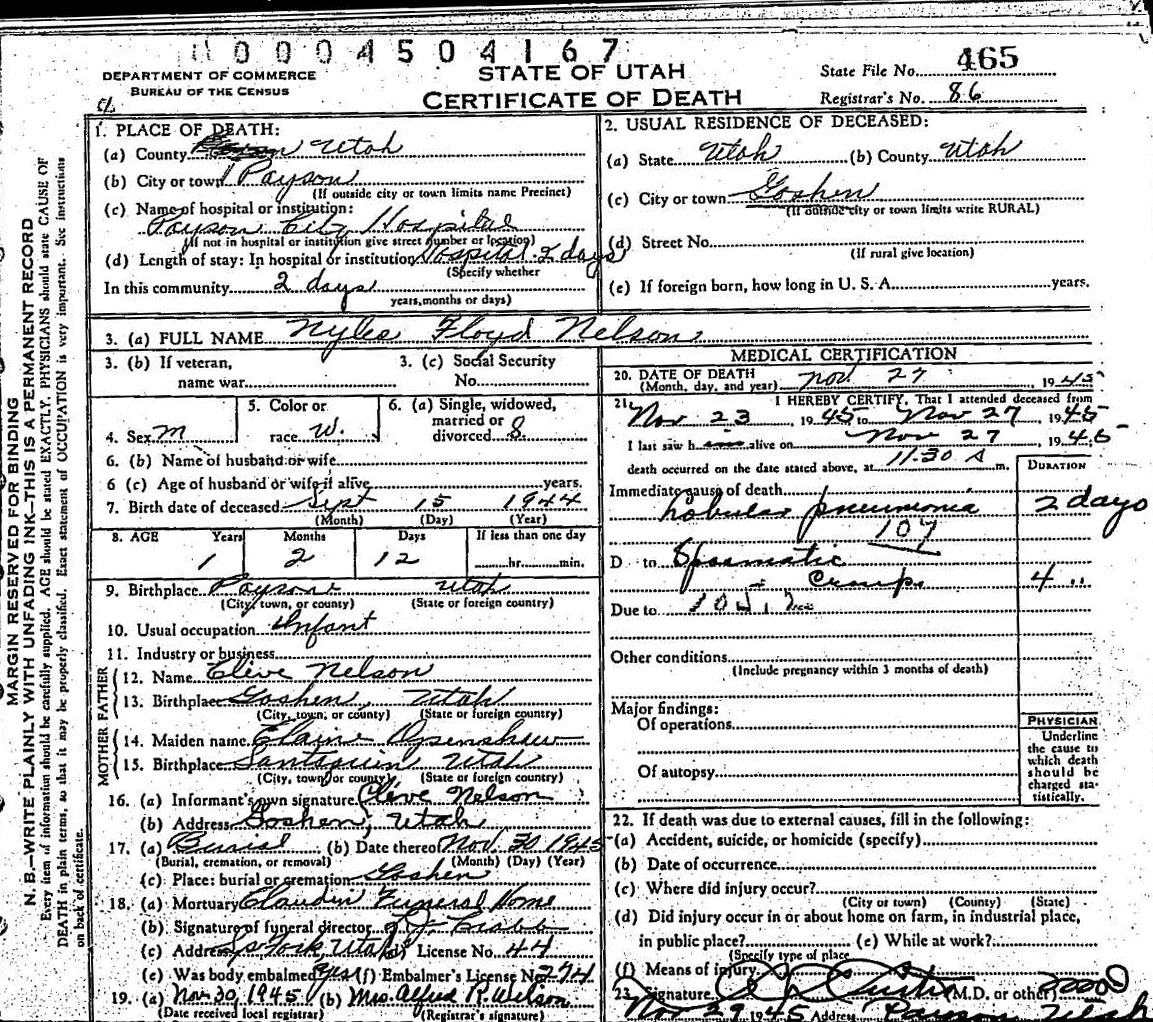 0004504167
DEPARTMENT OF COMMERCE
BUREAU OF THE CENSUS
STATE OF UTAH
CERTIFICATE OF DEATH
State File No. 465
Registrar's No. 86
MARGIN RESERVED FOR BINDING
N. B.—WRITE PLAINLY WITH UNFADING INK—THIS IS A PERMANENT RECORD
Every item of information should be carefully supplied. AGE should be stated EXACTLY. PHYSICIANS should state CAUSE OF
DEATH in plain terms, so that it may be properly classified. Exact statement of OCCUPATION is very important. See instructions
on back of certificate.
1. PLACE OF DEATH:
(a) County Utah
(b) City or town Payson
(If outside city or town limits name Precinct)
(c) Name of hospital or institution:
Payson City Hospital
(If not in hospital or institution give street number or location)
(d) Length of stay: In hospital or institution Hospital 2 days
(Specify whether
In this community 2 days
years, months or days)
2. USUAL RESIDENCE OF DECEASED:
(a) State Utah (b) County Utah
(c) City or town Goshen
(If outside city or town limits write RURAL)
(d) Street No.
(If rural give location)
(e) If foreign born, how long in U. S. A. years.
3. (a) FULL NAME Nyles Floyd Nelson
3. (b) If veteran, 3. (c) Social Security
name war No.
4. Sex M
5. Color or
race W.
6. (a) Single, widowed,
married or
divorced S
6. (b) Name of husband or wife
6 (c) Age of husband or wife if alive years.
7. Birth date of deceased Sept 15 1944
(Month) (Day) (Year)
8. AGE Years Months Days If less than one day
1 2 12 hr. min.
9. Birthplace Payson Utah
(City, town, or county) (State or foreign country)
10. Usual occupation Infant
11. Industry or business
MOTHER FATHER
12. Name Clive Nelson
13. Birthplace Goshen, Utah
(City, town, or county) (State or foreign country)
14. Maiden name Elaine Openshaw
15. Birthplace Santaquin Utah
(City, town, or county) (State or foreign country)
16. (a) Informant's own signature Clive Nelson
(b) Address Goshen, Utah
17. (a) Burial (b) Date thereof Nov. 30 1945
(Burial, cremation, or removal) (Month) (Day) (Year)
(c) Place: burial or cremation Goshen
18. (a) Mortuary Claudin Funeral Home
(b) Signature of funeral director
(c) Address Sp Fork, Utah (d) License No. 44
(e) Was body embalmed Yes (f) Embalmer's License No 274
19. (a) Nov. 30, 1945 (b) Mrs. Alfred R. Wilson
(Date received local registrar) (Registrar's signature)
MEDICAL CERTIFICATION
20. DATE OF DEATH
(Month, day, and year) Nov 27, 1945
21. I HEREBY CERTIFY, That I attended deceased from
Nov 23, 1945 to Nov 27 1945
I last saw h alive on Nov 27, 1945
death occurred on the date stated above, at 11:30 A m.
DURATION
Immediate cause of death
Lobular pneumonia 2 days
107
D to Spasmatic
Croup 4 "
Due to
Other conditions
(Include pregnancy within 3 months of death)
Major findings:
Of operations
Of autopsy
PHYSICIAN
Underline
the cause to
which death
should be
charged sta-
tistically.
22. If death was due to external causes, fill in the following:
(a) Accident, suicide, or homicide (specify)
(b) Date of occurrence
(c) Where did injury occur?
(City or town) (County) (State)
(d) Did injury occur in or about home on farm, in industrial place,
in public place? (e) While at work?
(Specify type of place
(f) Means of injury
23 Signature (M.D. or other)
Nov 29 1945 Address Payson Utah